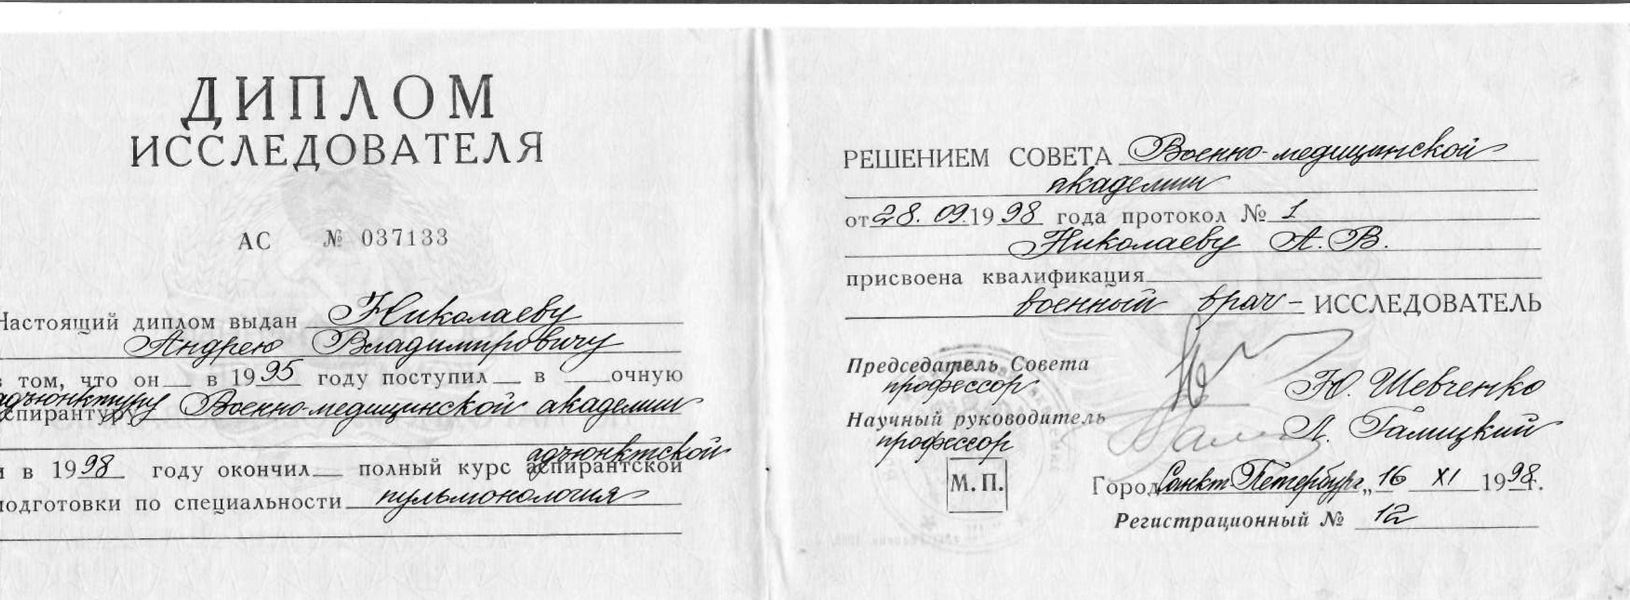 ДИПЛОМ
ИССЛЕДОВАТЕЛЯ
АС № 037133
Настоящий диплом выдан Николаеву
Андрею Владимировичу
в том, что он в 1995 году поступил в очную
адъюнктуру
аспирантуру Военно-медицинской академии
адъюнктской
и в 1998 году окончил полный курс аспирантской
подготовки по специальности пульмонология
РЕШЕНИЕМ СОВЕТА Военно-медицинской
академии
от 28.09.1998 года протокол № 1
Николаеву А.В.
присвоена квалификация
военный врач – ИССЛЕДОВАТЕЛЬ
Председатель Совета
профессор Ю. Шевченко
Научный руководитель
профессор Л. Галицкий
М.П.
Город Санкт Петербург „16 XI 1998г.
Регистрационный № 12